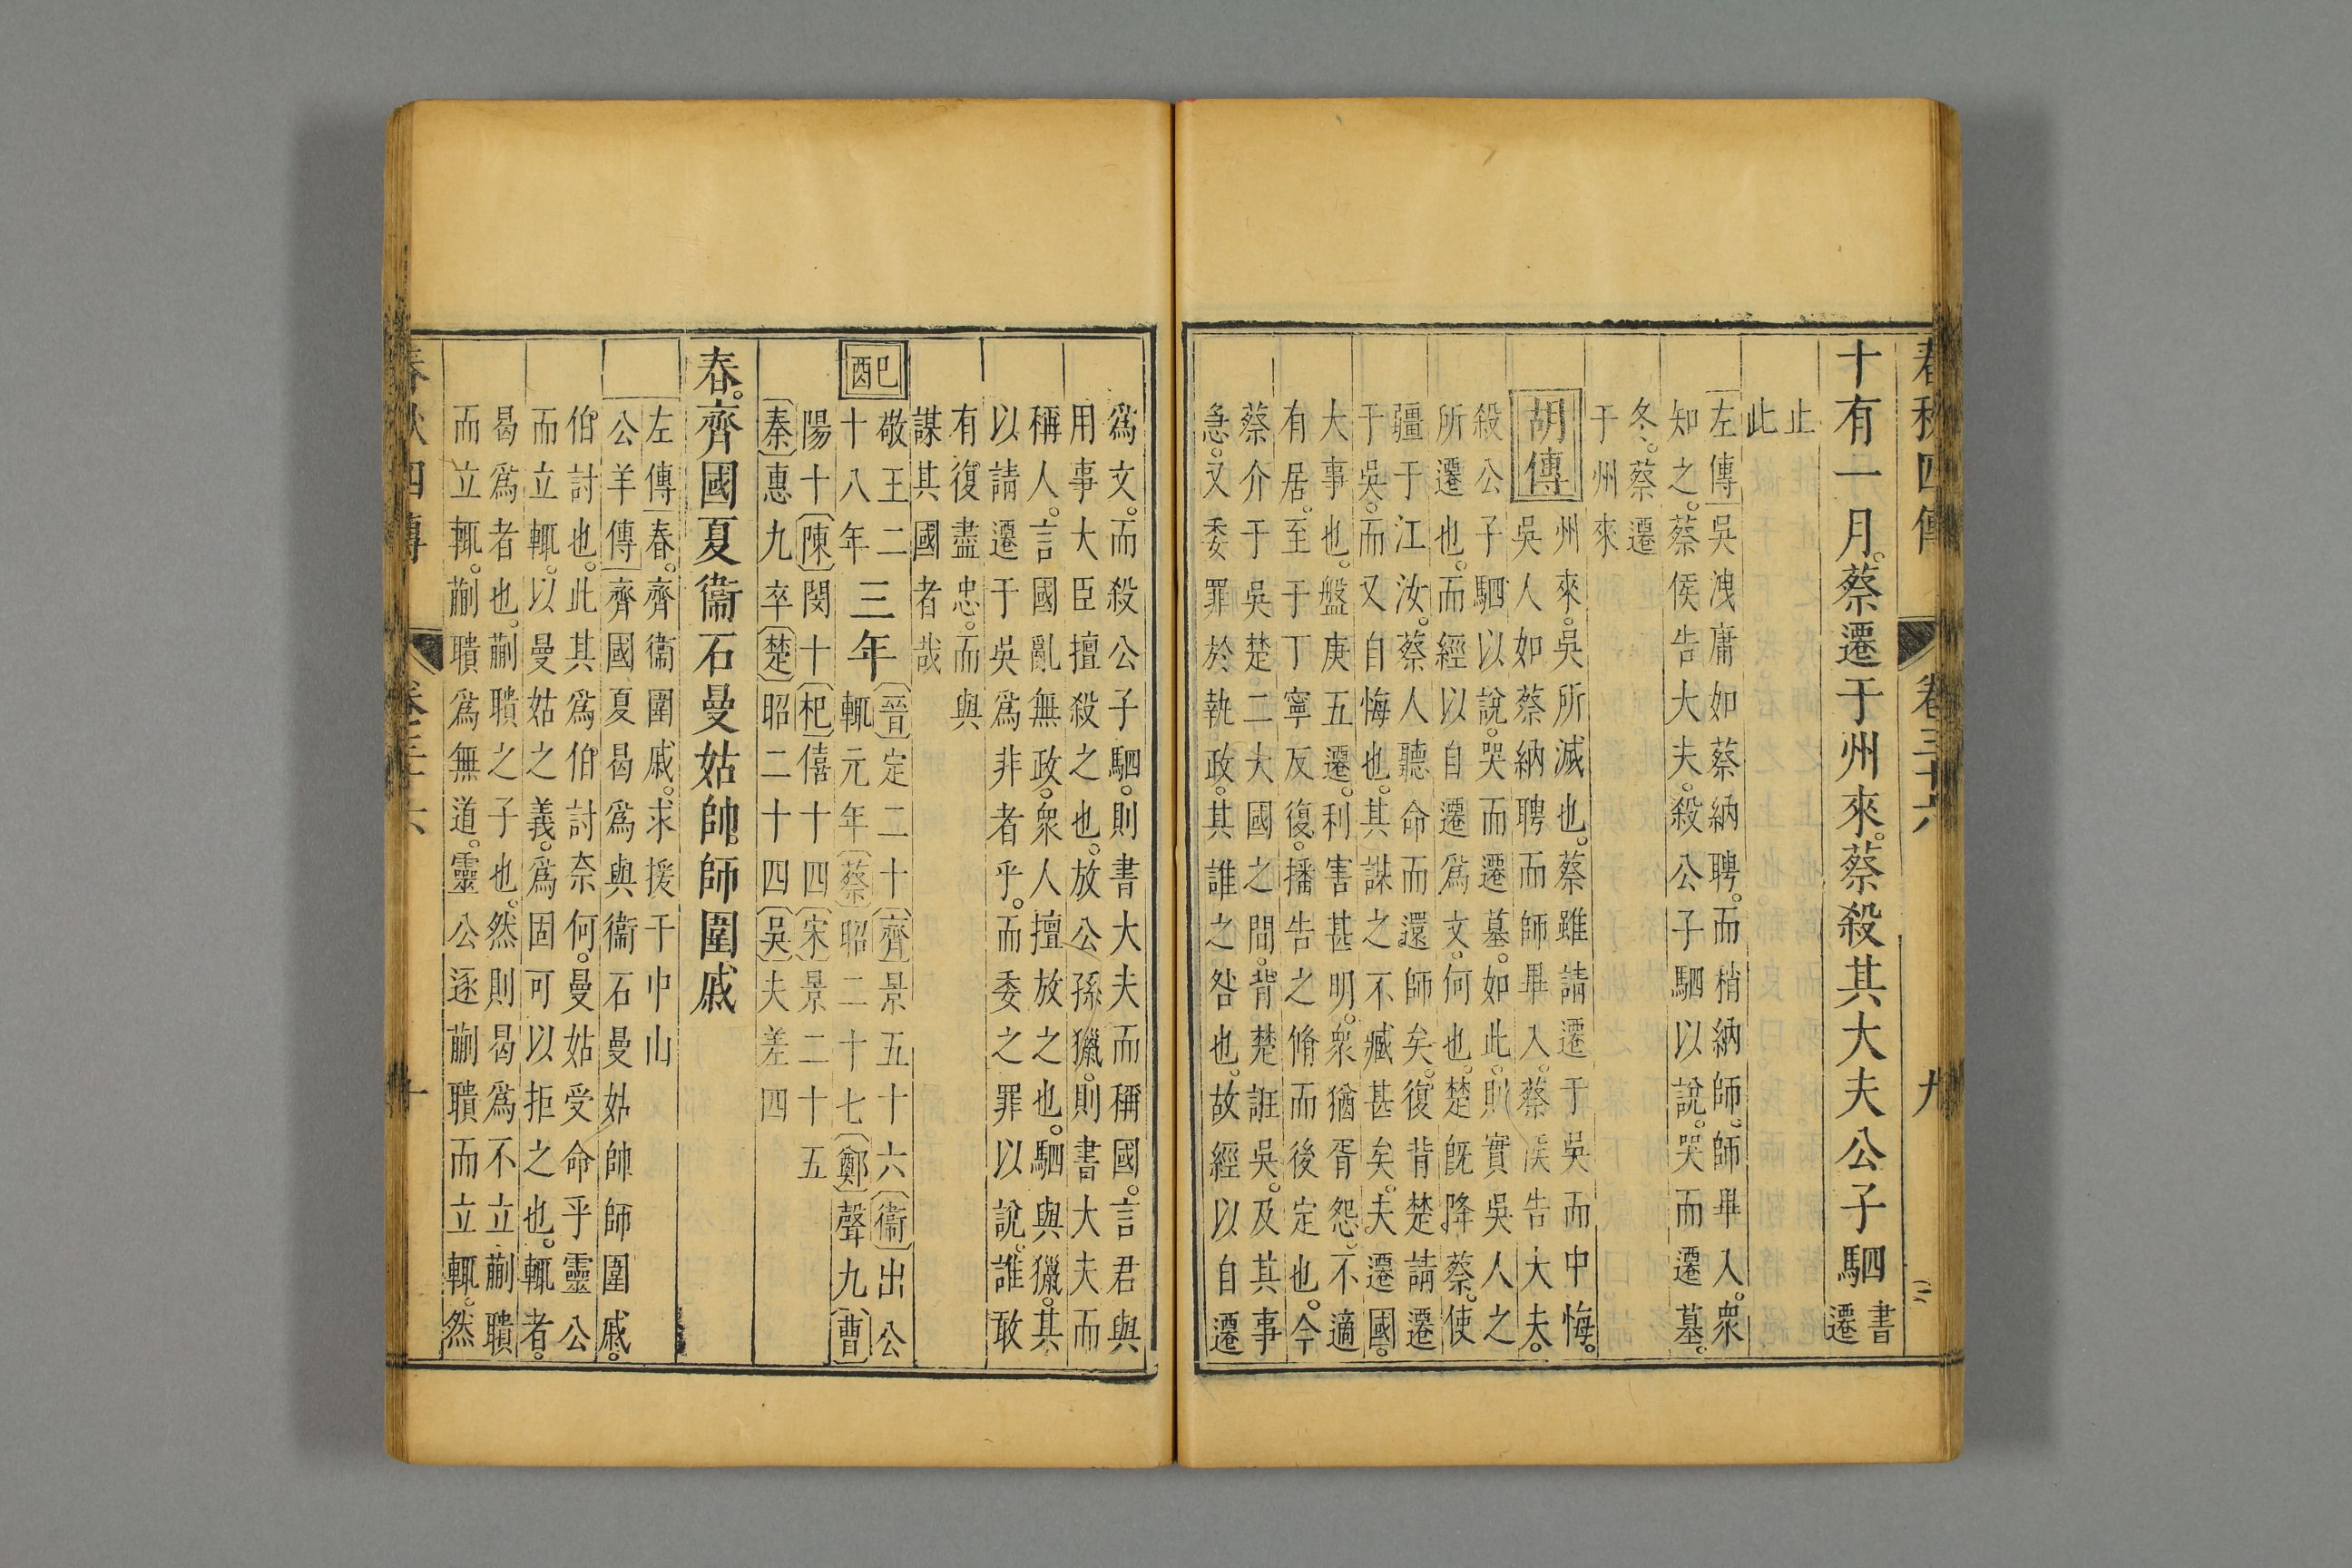 春秋四傳 卷三十六 九
十有一月。蔡遷于州來。蔡殺其大夫公子駟書
遷
止
此
左傳吳洩庸如蔡納聘。而稍納師。師畢入。衆
知之。蔡侯告大夫。殺公子駟以說。哭而遷墓。
冬。蔡遷
于州來
胡傳
州來。吳所滅也。蔡雖請遷于吳而中悔。
吳人如蔡納聘而師畢入。蔡侯告大夫。
殺公子駟以說。哭而遷墓。如此。則實吳人之
所遷也。而經以自遷爲文。何也。楚旣降蔡。使
疆于江汝。蔡人聽命而還師矣。復背楚請遷
于吳。而又自悔也。其謀之不臧甚矣。夫遷國。
大事也。盤庚五遷。利害甚明。衆猶胥怨。不適
有居。至于丁寧反復。播告之脩而後定也。今
蔡介于吳楚二大國之間。背楚誑吳。及其事
急。又委罪於執政。其誰之咎也。故經以自遷
爲文。而殺公子駟。則書大夫而稱國。言君與
用事大臣擅殺之也。放公孫獵。則書大夫而
稱人。言國亂無政。衆人擅放之也。駟與獵。其
以請遷于吳爲非者乎。而委之罪以說。誰敢
有復盡忠。而與
謀其國者哉
己酉
敬王二
十八年
三年
晉定二十齊景五十六衞出公
輒元年蔡昭二十七鄭聲九曹
陽十陳閔十杞僖十四宋景二十五
秦惠九卒楚昭二十四吳夫差四
春。齊國夏衞石曼姑帥師圍戚
左傳春。齊衞圍戚。求援于中山
公羊傳齊國夏曷爲與衞石曼姑帥師圍戚。
伯討也。此其爲伯討奈何。曼姑受命乎靈公
而立輒。以曼姑之義。爲固可以拒之也。輒者。
曷爲者也。蒯聵之子也。然則曷爲不立蒯聵
而立輒。蒯聵爲無道。靈公逐蒯聵而立輒。然
春秋四傳 卷三十六 十